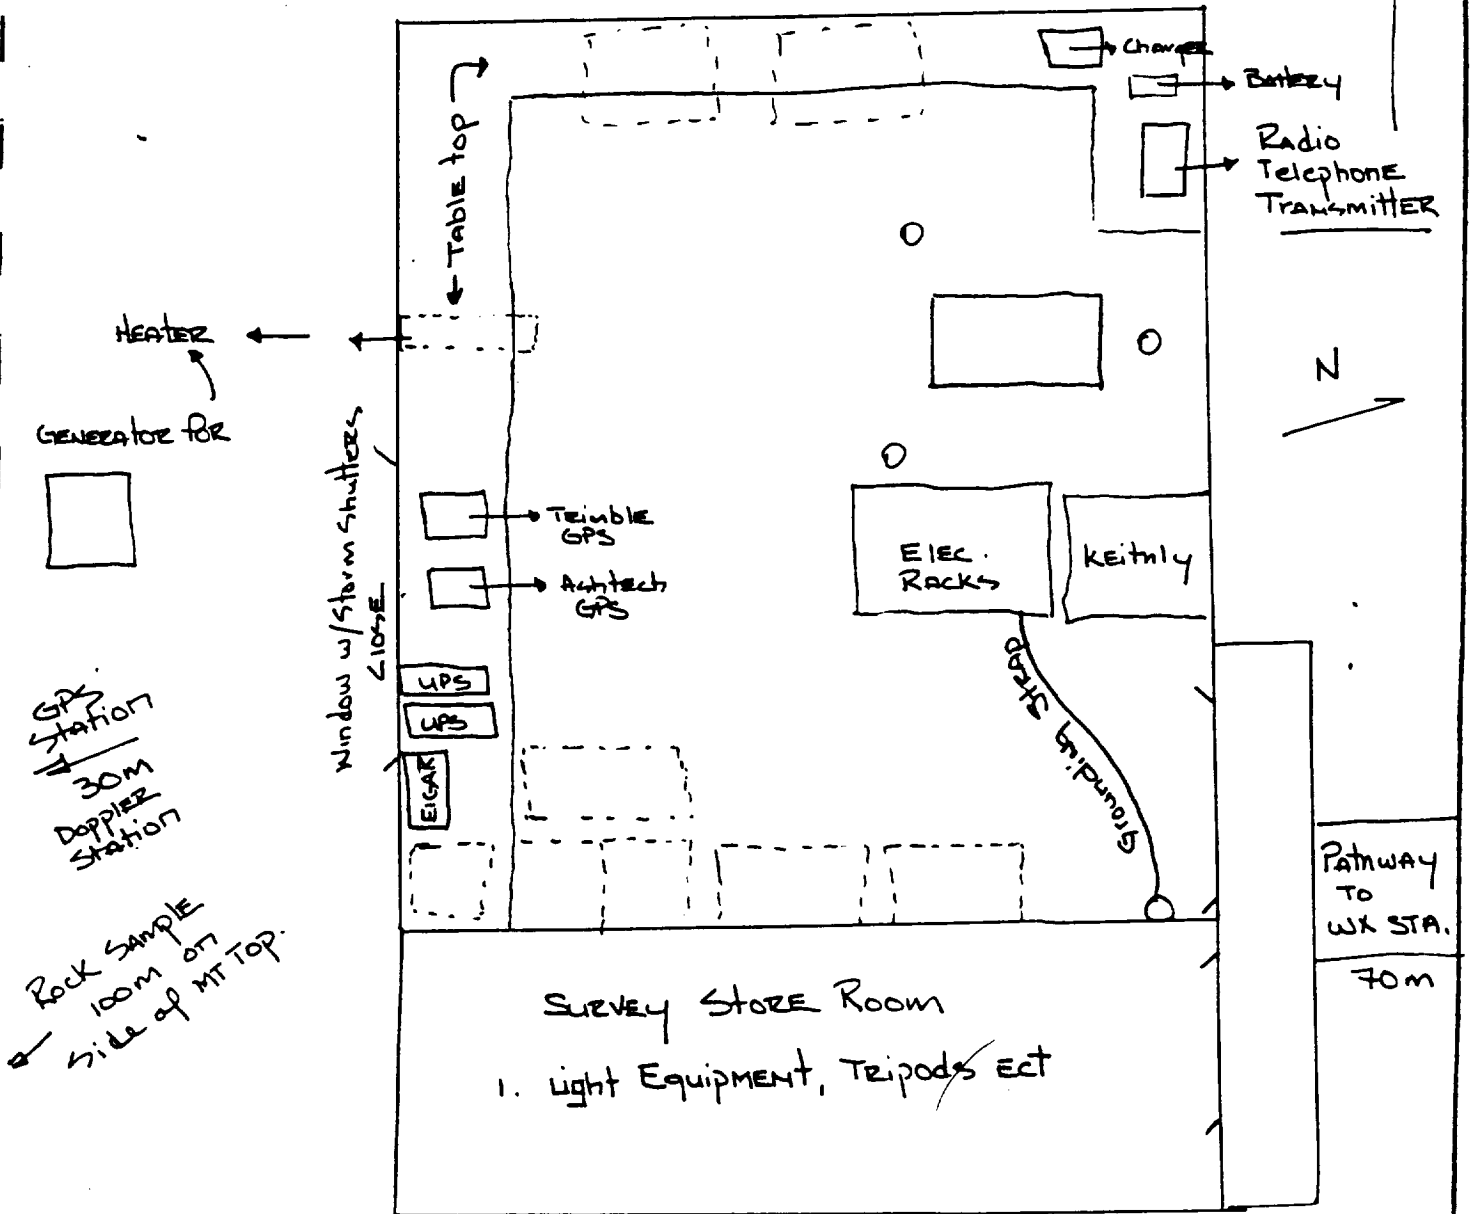 Charger
Battery
Radio
Telephone
Transmitter
Table top
Heater
Generator for
N
Window w/Storm Shutters
Close
Trimble
GPS
Ashtech
GPS
Elec.
Racks
Keithly
UPS
UPS
grounding Strap
GPS
Station
30m
Doppler
Station
Pathway
To
WX STA.
70m
Rock Sample
100m on
side of MT Top.
Survey Store Room
1. Light Equipment, Tripods Ect